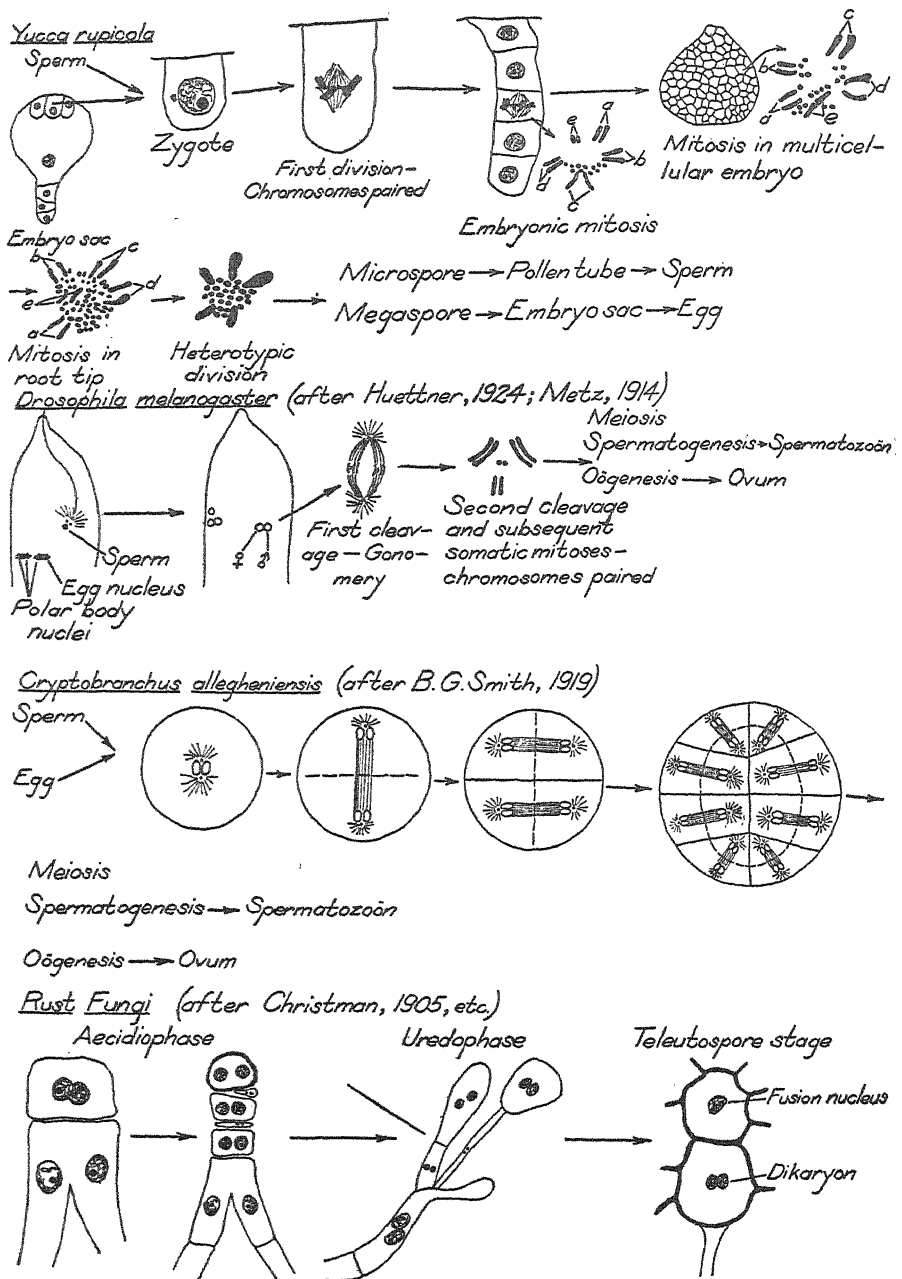 Yucca rupicola
Sperm
Zygote
First division-
Chromosomes paired
a
e
b
d
c
Embryonic mitosis
c
b
d
a
e
Mitosis in multicel-
lular embryo
Embryo sac
b
c
d
e
a
Mitosis in
root tip
Heterotypic
division
Microspore → Pollen tube → Sperm
Megaspore → Embryo sac → Egg
Drosophila melanogaster (after Huettner, 1924; Metz, 1914)
Sperm
Egg nucleus
Polar body
nuclei
♀ ♂
First cleav-
age - Gono-
mery
Second cleavage
and subsequent
somatic mitoses-
chromosomes paired
Meiosis
Spermatogenesis → Spermatozoön
Oögenesis → Ovum
Cryptobranchus allegheniensis (after B.G. Smith, 1919)
Sperm
Egg
Meiosis
Spermatogenesis → Spermatozoön
Oögenesis → Ovum
Rust Fungi (after Christman, 1905, etc.)
Aecidiophase
Uredophase
Teleutospore stage
Fusion nucleus
Dikaryon